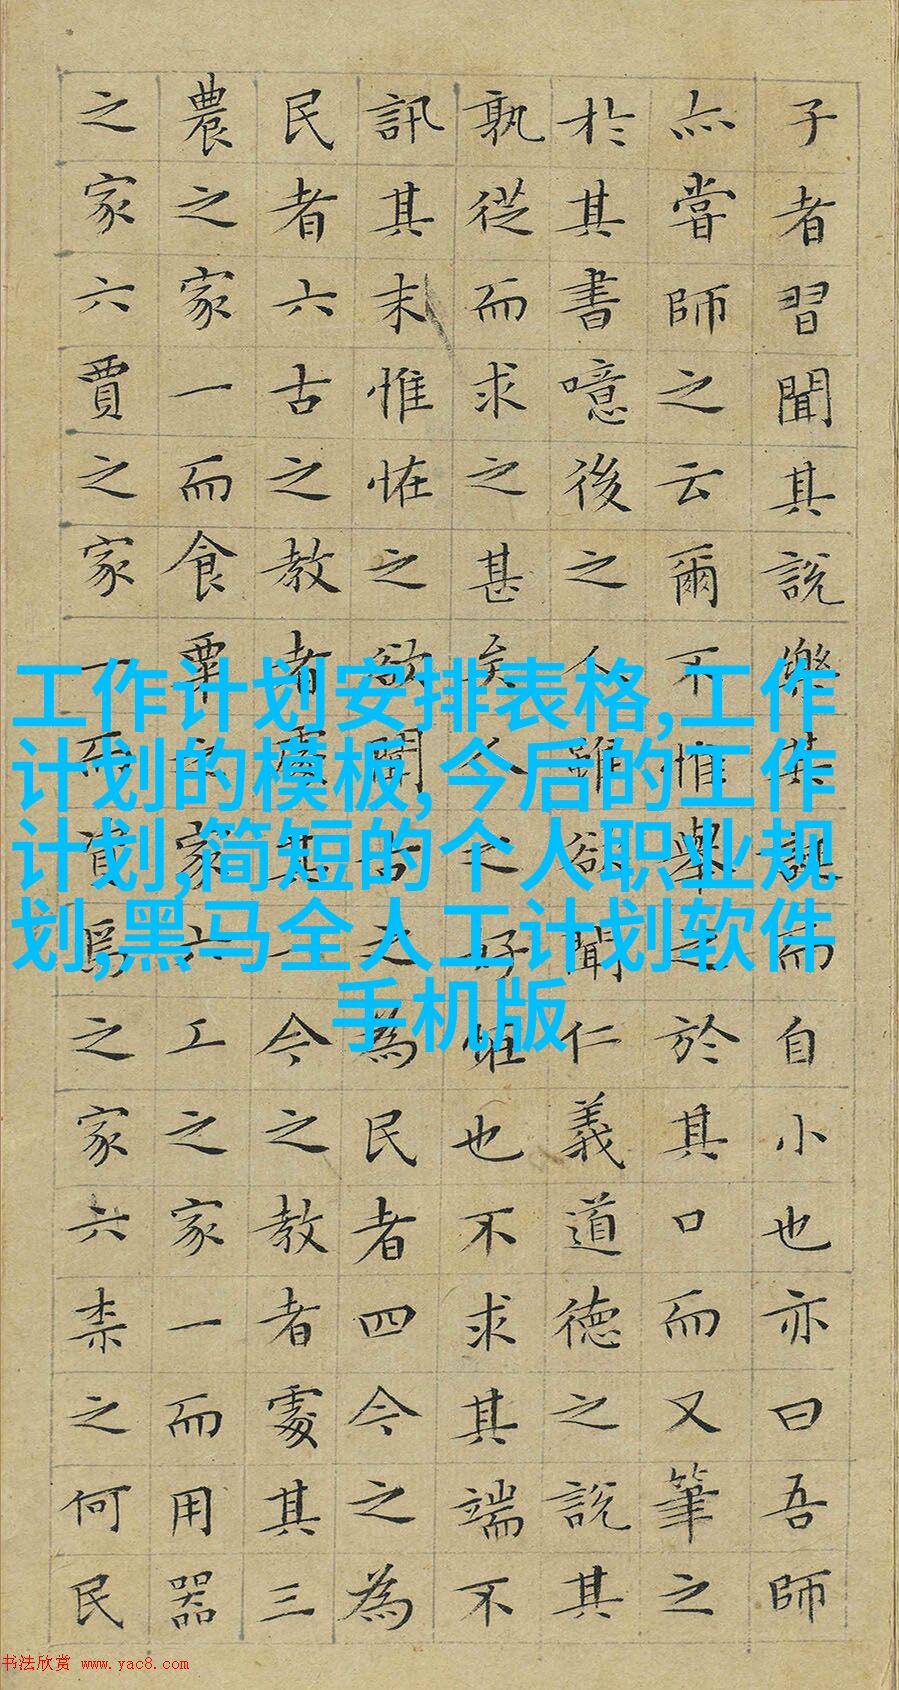 子者習聞其說樂其誕而自小也亦曰吾師
亦嘗師之云爾不惟舉之於其口而又筆之
於其書噫後之人雖欲聞仁義道德之說其
孰從而求之甚矣人之好恠也不求其端不
訊其末惟恠之欲聞古之為民者四今之為
民者六古之教者處其一今之教者處其三
農之家一而食粟之家六工之家一而用器
之家六賈之家一而資焉之家六柰之何民
工作计划安排表格,工作
计划的模板,今后的工作
计划,简短的个人职业规
划,黑马全人工计划软件
手机版
书法欣赏 www.yac8.com